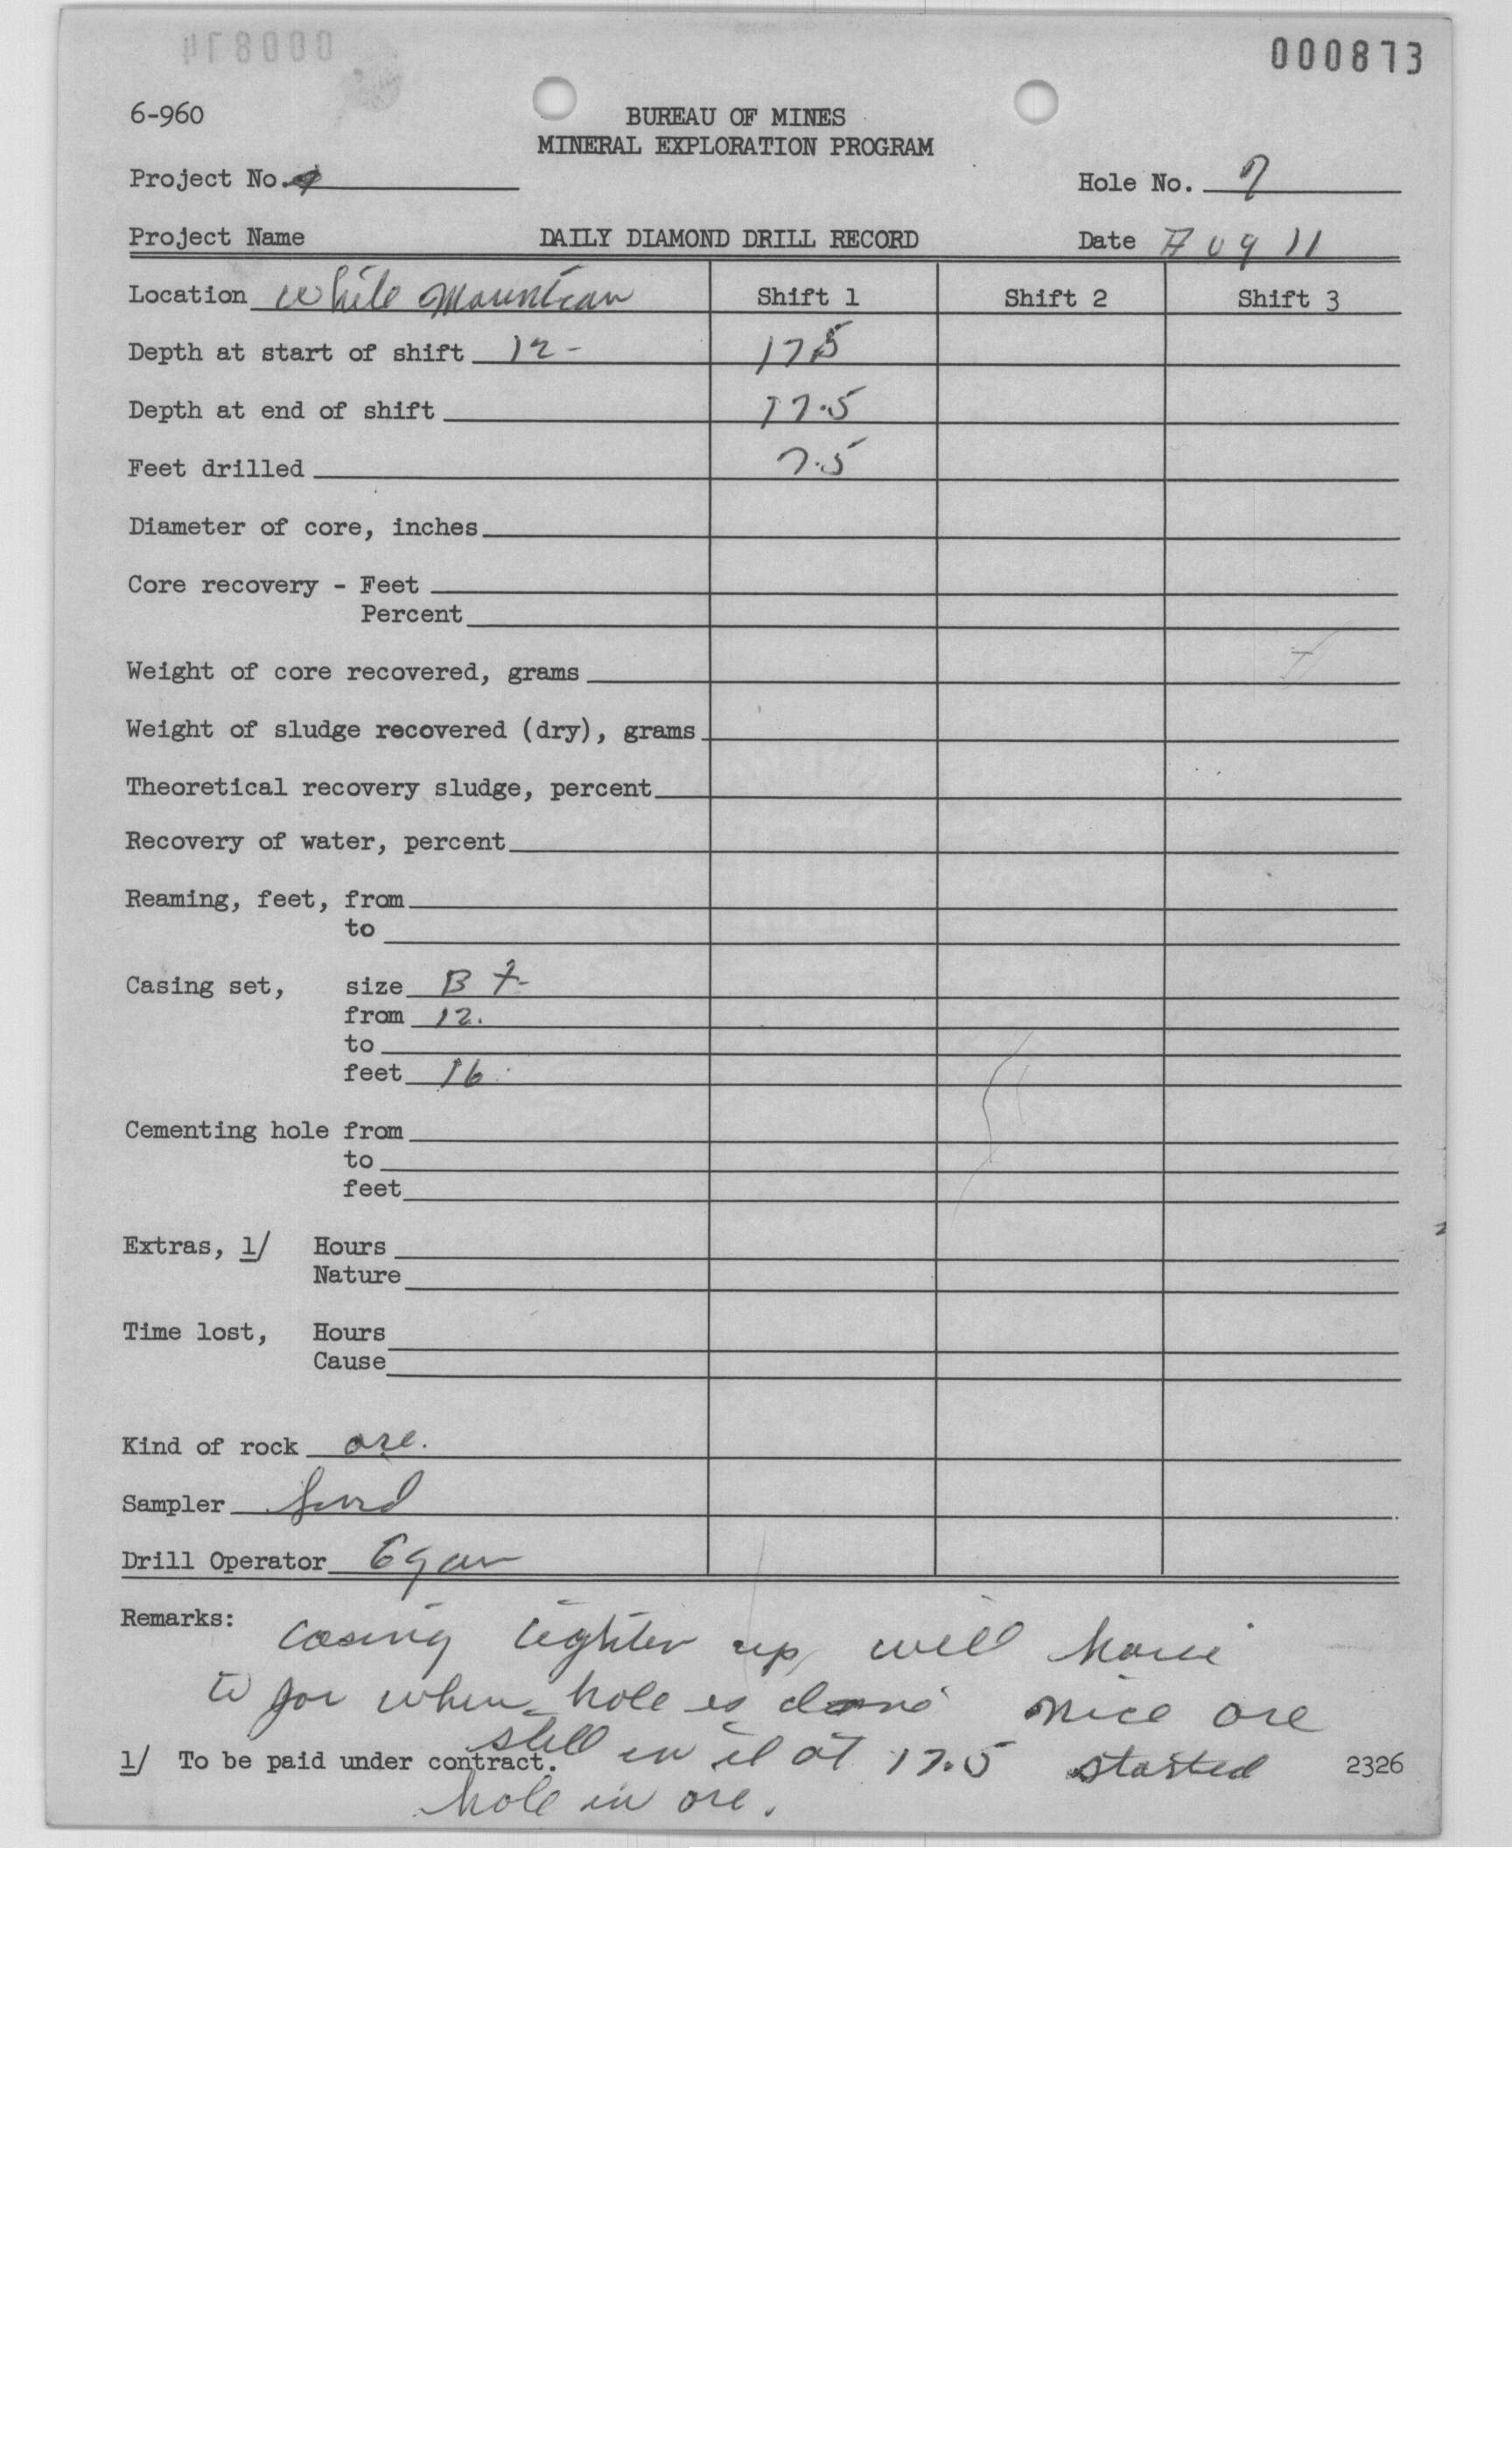 000873
6-960
BUREAU OF MINES
MINERAL EXPLORATION PROGRAM
Project No.
Hole No. 7
Project Name DAILY DIAMOND DRILL RECORD Date Aug 11
Location White Mountian Shift 1 Shift 2 Shift 3
Depth at start of shift 12- 175
Depth at end of shift 17.5
Feet drilled 7.5
Diameter of core, inches
Core recovery - Feet
Percent
Weight of core recovered, grams
Weight of sludge recovered (dry), grams
Theoretical recovery sludge, percent
Recovery of water, percent
Reaming, feet, from
to
Casing set, size B
from 12.
to
feet 16
Cementing hole from
to
feet
Extras, 1/ Hours
Nature
Time lost, Hours
Cause
Kind of rock ore.
Sampler
Drill Operator Egan
Remarks: Casing tighten up will have
to when hole is done nice ore
still in it at 17.5 started
1/ To be paid under contract. 2326
hole in ore.